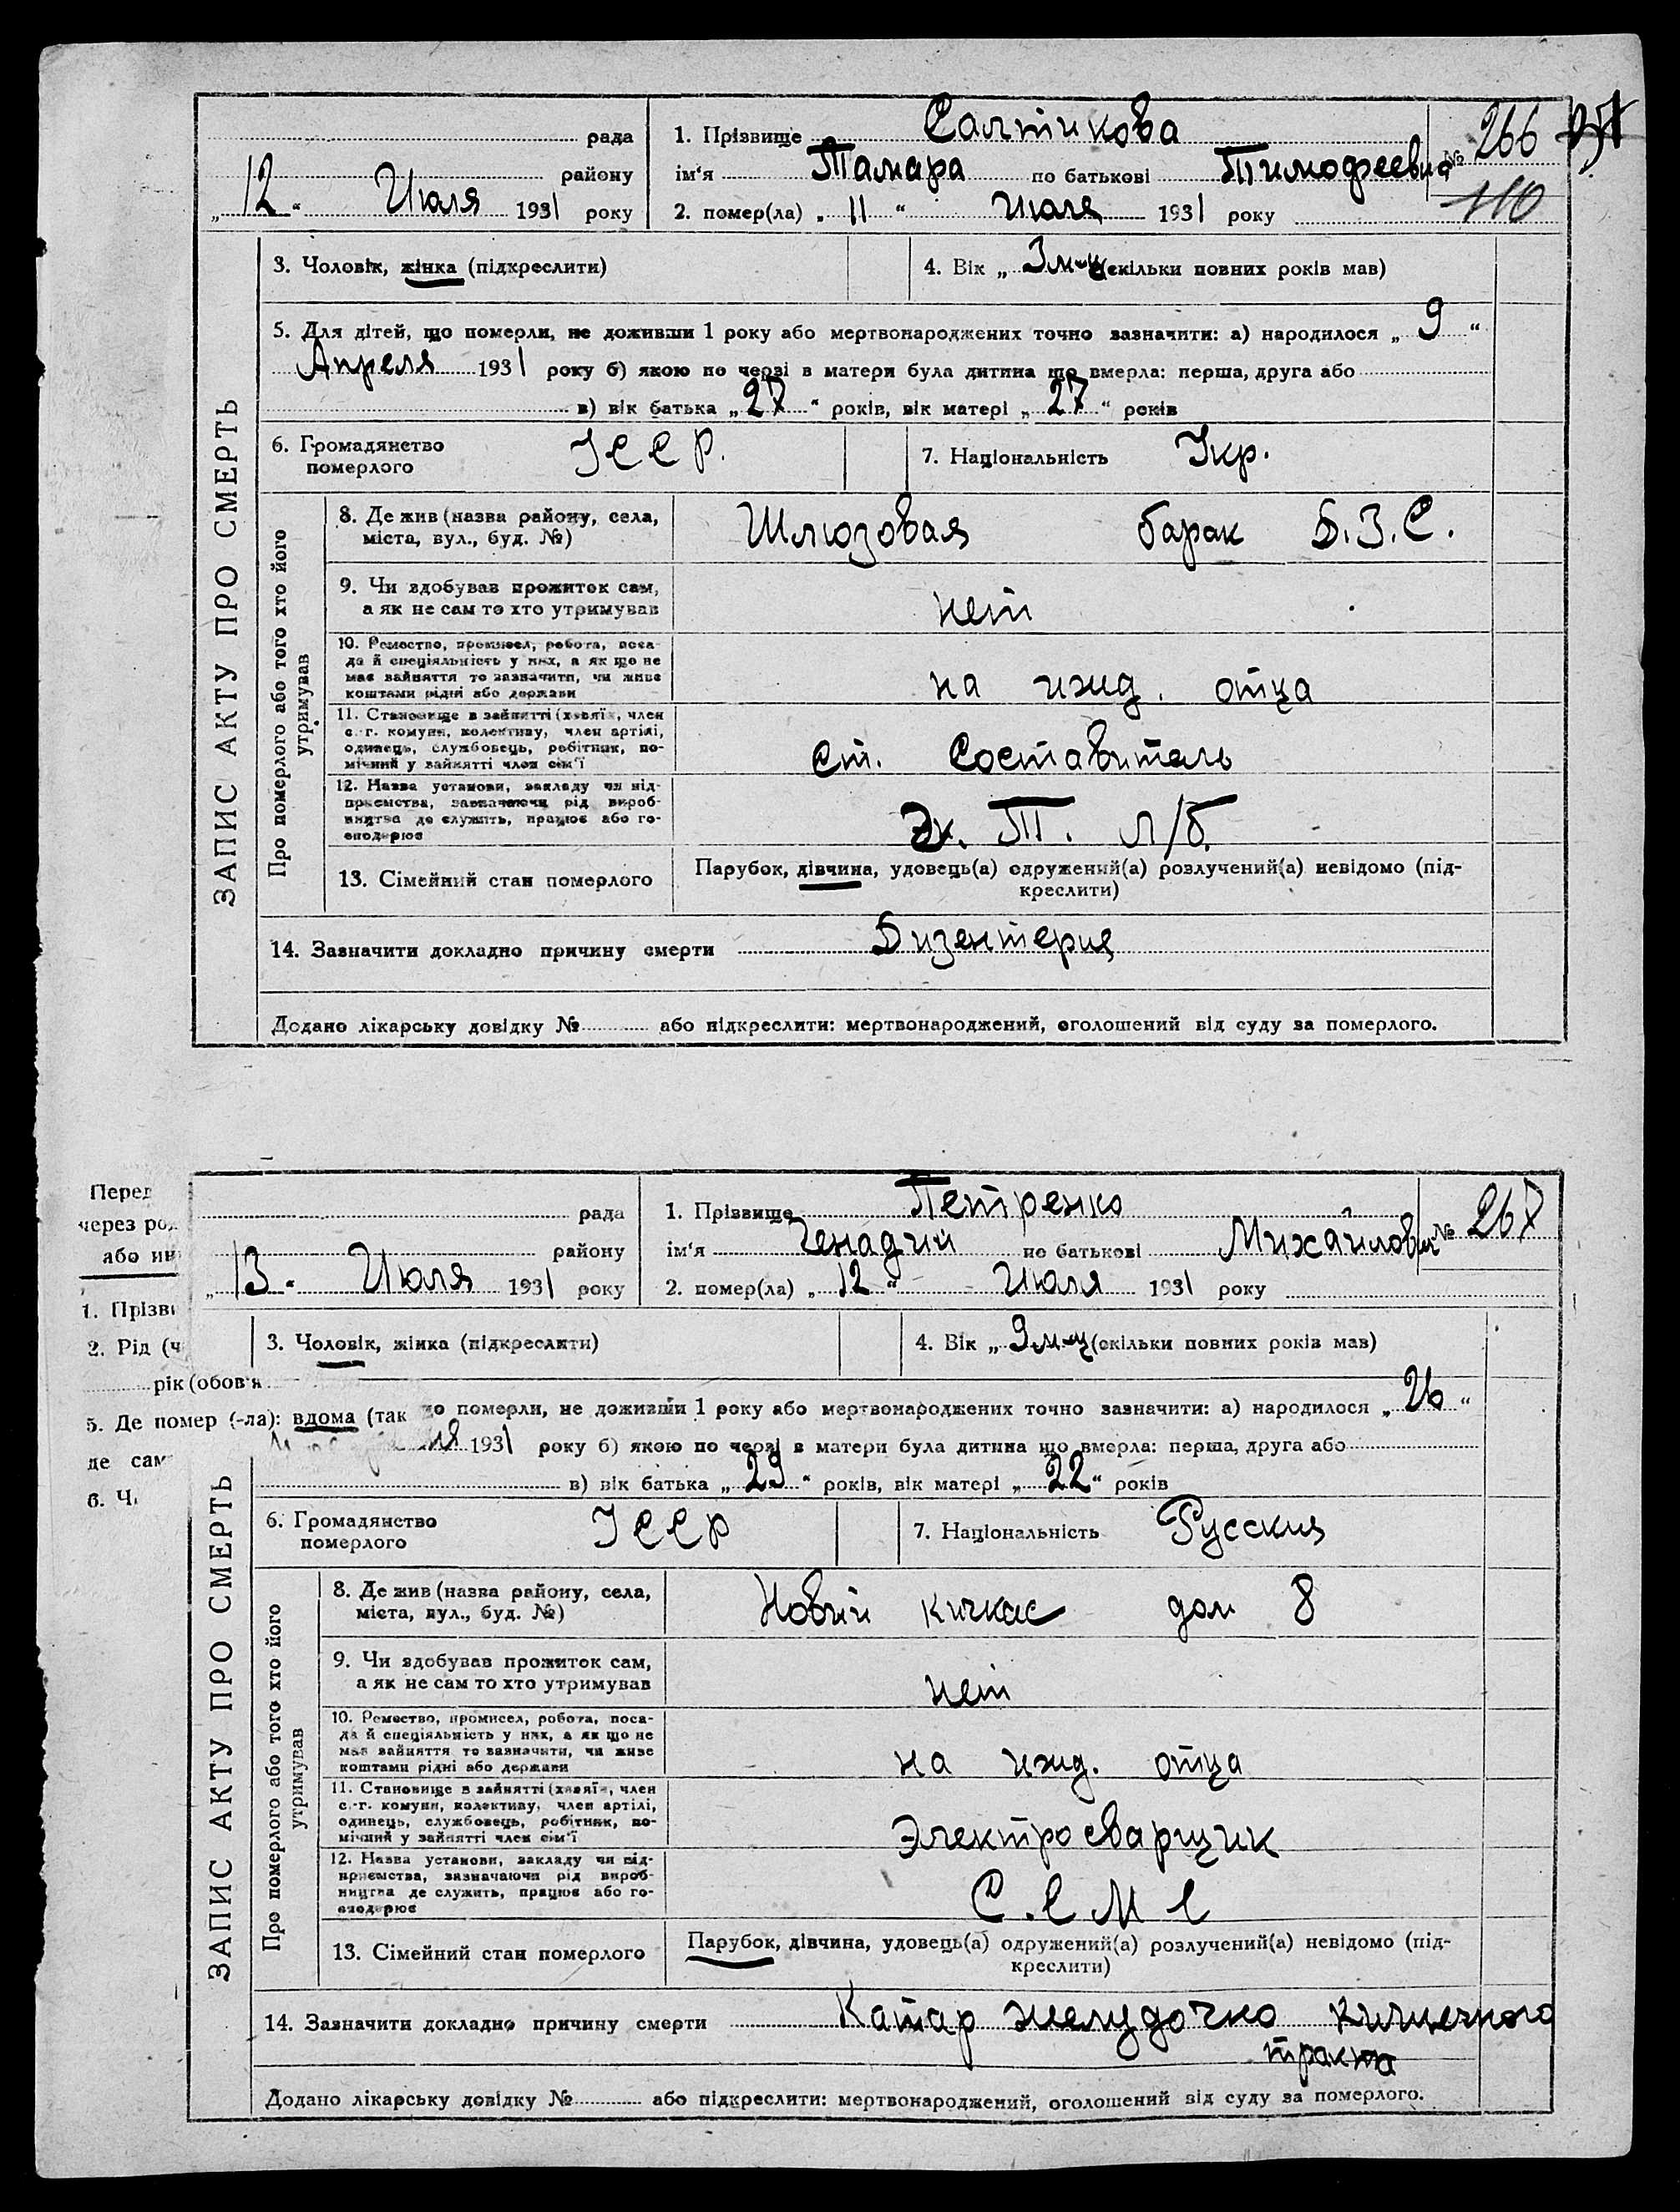 рада
району
„12“ Июля 1931 року
1. Прізвище Салтикова
ім'я Тамара по батькові Тимофеевна
2. помер(ла) „11“ июля 1931 року
№ 266
110
3. Чоловік, жінка (підкреслити)
4. Вік „3 м-ц (скільки повних років мав)
5. Для дітей, що померли, не доживши 1 року або мертвонароджених точно зазначити: а) народилося „9“
Апреля 1931 року б) якою по черзі в матери була дитина що вмерла: перша, друга або
в) вік батька „27“ років, вік матері „27“ років
6. Громадянство
померлого
УССР.
7. Національність Укр.
ЗАПИС АКТУ ПРО СМЕРТЬ
Про померлого або того хто його
утримував
8. Де жив (назва району, села,
міста, вул., буд. №)
Шлюзовая барак Б.З.С.
9. Чи здобував прожиток сам,
а як не сам то хто утримував
нет
10. Ремество, промисел, робота, поса-
да й специяльність у них, а як що не
має зайняття то зазначити, чи живе
коштами рідні або держави
на ижд. отца
11. Становище в зайнятті (хазяїн, член
с.-г. комуни, колективу, член артілі,
одинець, службовець, робітник, по-
мічний у зайнятті член сім'ї
Ст. Составитель
12. Назва установи, закладу чи під-
приємства, зазначаючи рід вироб-
ництва де служить, працює або го-
сподарює
Эк. Т. л/б.
13. Сімейний стан померлого
Парубок, дівчина, удовець(а) одружений(а) розлучений(а) невідомо (під-
креслити)
14. Зазначити докладно причину смерти Дизентерия
Додано лікарську довідку № або підкреслити: мертвонароджений, оголошений від суду за померлого.
Перед
через ро
або ин
1. Прізви
2. Рід (ч
рік (обов'я
5. Де помер (-ла): вдома (так
де сам
6. Ч
рада
району
„13“ Июля 1931 року
1. Прізвище Петренко
ім'я Генадий по батькові Михайлович
2. помер(ла) „12“ Июля 1931 року
№ 267
3. Чоловік, жінка (підкреслити)
4. Вік „9 м-ц (скільки повних років мав)
що померли, не доживши 1 року або мертвонароджених точно зазначити: а) народилося „26“
1931 року б) якою по черзі в матери була дитина що вмерла: перша, друга або
в) вік батька „29“ років, вік матері „22“ років
6. Громадянство
померлого
УССР
7. Національність Русский
ЗАПИС АКТУ ПРО СМЕРТЬ
Про померлого або того хто його
утримував
8. Де жив (назва району, села,
міста, вул., буд. №)
Новый кичкас дом 8
9. Чи здобував прожиток сам,
а як не сам то хто утримував
нет
10. Ремество, промисел, робота, поса-
да й специяльність у них, а як що не
має зайняття то зазначити, чи живе
коштами рідні або держави
на ижд. отца
11. Становище в зайнятті (хазяїн, член
с.-г. комуни, колективу, член артілі,
одинець, службовець, робітник, по-
мічний у зайнятті член сім'ї
Электросварщик
12. Назва установи, закладу чи під-
приємства, зазначаючи рід вироб-
ництва де служить, працює або го-
сподарює
С.С М С
13. Сімейний стан померлого
Парубок, дівчина, удовець(а) одружений(а) розлучений(а) невідомо (під-
креслити)
14. Зазначити докладно причину смерти Катар желудочно кишечного
тракта
Додано лікарську довідку № або підкреслити: мертвонароджений, оголошений від суду за померлого.